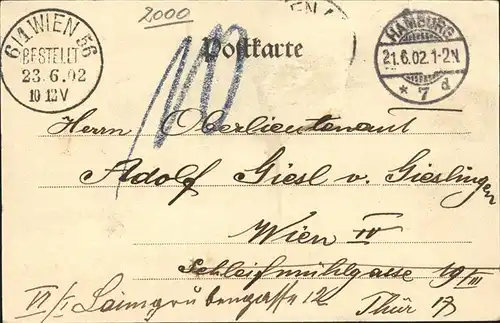 2000
6/1 WIEN 56
BESTELLT
23.6.02
10 12V
Postkarte
HAMBURG
21.6.02.1-2N
* 7 d
10
Herrn Oberlieutenant
Adolf Giesl v. Gieslingen
Wien IV
Schleifmühlgasse 19/III
VI/1 Laimgrubengasse 12
Thür 17